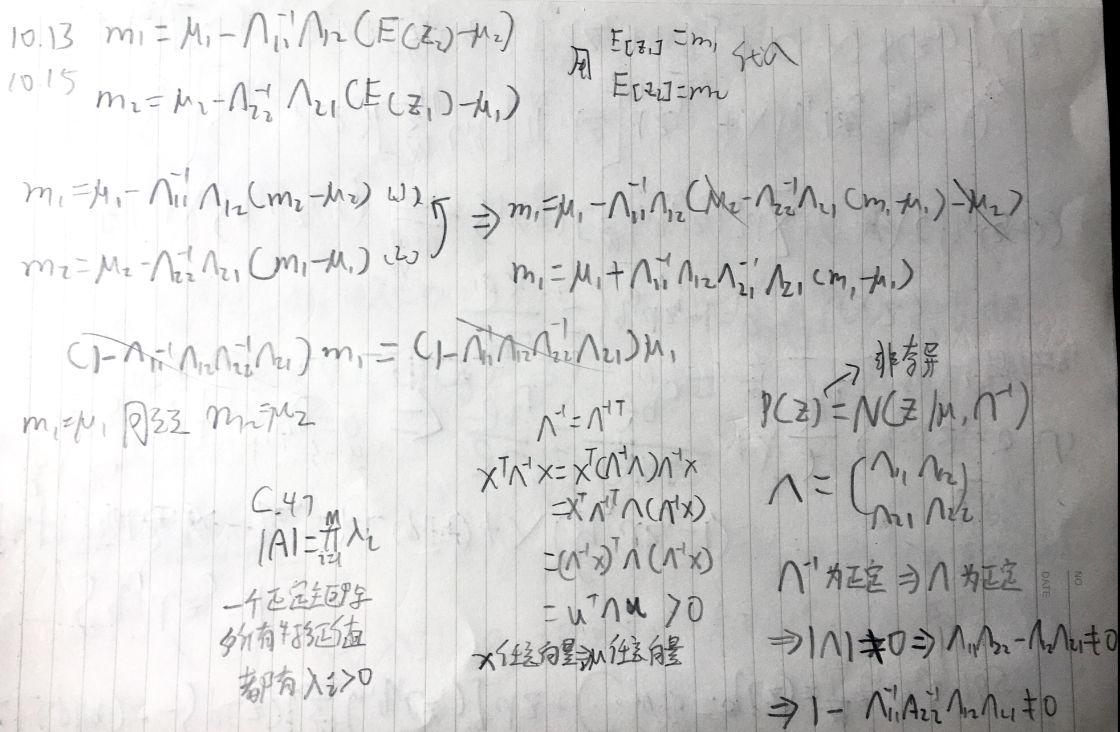 10.13 m₁ = μ₁ - Λ₁₁⁻¹Λ₁₂(E(z₂)-μ₂)
10.15 m₂ = μ₂ - Λ₂₂⁻¹Λ₂₁(E(z₁)-μ₁)
用 E[z₁]=m₁
E[z₂]=m₂
m₁ = μ₁ - Λ₁₁⁻¹Λ₁₂(m₂-μ₂) (1)
m₂ = μ₂ - Λ₂₂⁻¹Λ₂₁(m₁-μ₁) (2)
⇒ m₁ = μ₁ - Λ₁₁⁻¹Λ₁₂(μ₂ - Λ₂₂⁻¹Λ₂₁(m₁-μ₁) - μ₂)
m₁ = μ₁ + Λ₁₁⁻¹Λ₁₂Λ₂₁⁻¹Λ₂₁(m₁-μ₁)
(1-Λ₁₁⁻¹Λ₁₂Λ₂₂⁻¹Λ₂₁)m₁ = (1-Λ₁₁⁻¹Λ₁₂Λ₂₂⁻¹Λ₂₁)μ₁
m₁=μ₁ 同理 m₂=μ₂
C.47
|A| = ∏ᵢ₌₁ᴹ λᵢ
一个正定矩阵
所有特征值
都有 λᵢ>0
Λ⁻¹ = Λ⁻¹ᵀ
xᵀΛ⁻¹x = xᵀ(Λ⁻¹Λ)Λ⁻¹x
= xᵀΛ⁻¹ᵀΛ(Λ⁻¹x)
= (Λ⁻¹x)ᵀΛ(Λ⁻¹x)
= uᵀΛu >0
x任意向量⇒u任意向量
非奇异
P(z) = N(z|μ,Λ⁻¹)
Λ = (Λ₁₁ Λ₁₂
Λ₂₁ Λ₂₂)
Λ⁻¹为正定 ⇒ Λ为正定
⇒ |Λ|≠0 ⇒ Λ₁₁Λ₂₂-Λ₁₂Λ₂₁≠0
⇒ 1 - Λ₁₁⁻¹Λ₂₂⁻¹Λ₁₂Λ₂₁≠0
NO
DATE